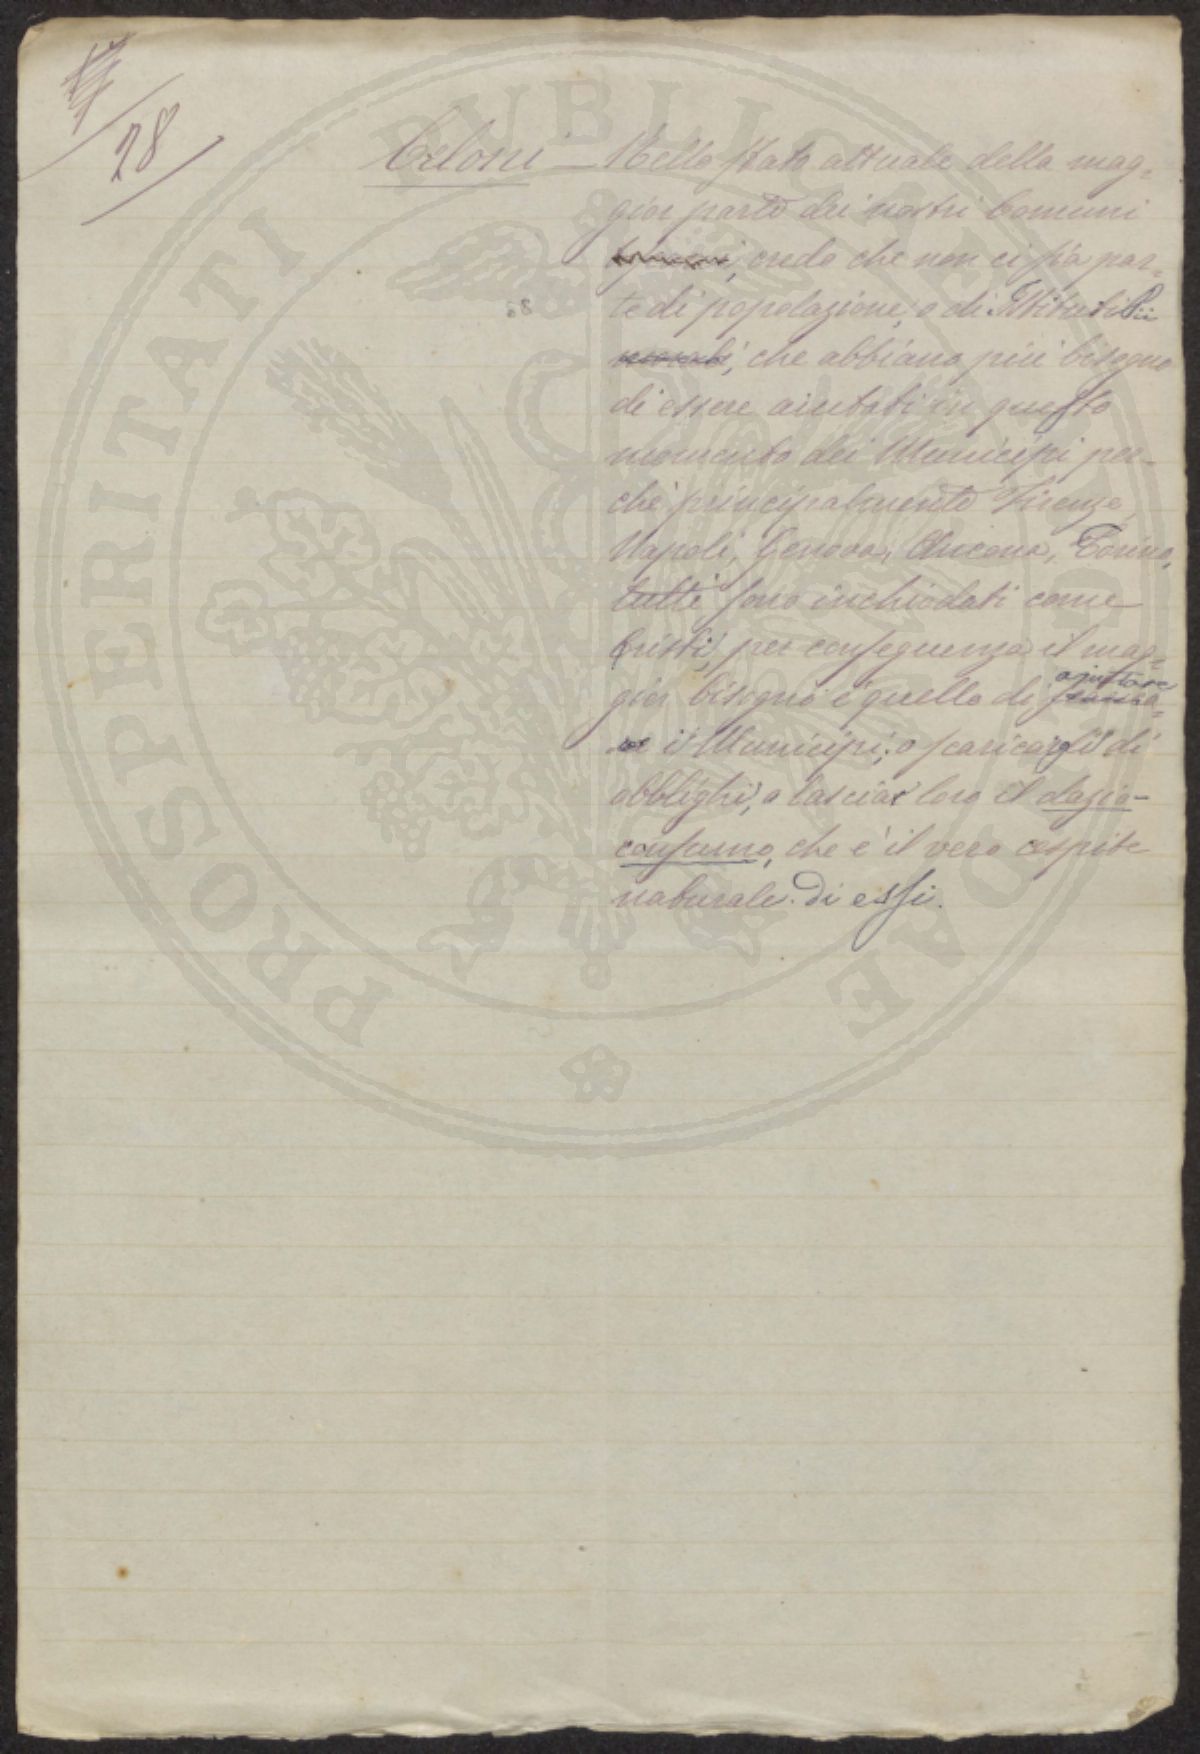 28
Celoni — Nello stato attuale della mag=
gior parte dei nostri Comuni
credo che non ci sia par=
te di popolazione, o di Istituti Pii
morali, che abbiano più bisogno
di essere aiutati in questo
momento dei Municipi per=
chè principalmente Firenze,
Napoli, Genova, Ancona, Torino,
tutti sono inchiodati come
Cristi, per conseguenza il mag=
gior bisogno è quello di ajutare
i Municipi; o scaricargli di
obblighi, o lasciar loro il dazio-
consumo, che è il vero cespite
naturale di essi.
68
PROSPERITATI PUBLICAE AVGENDAE